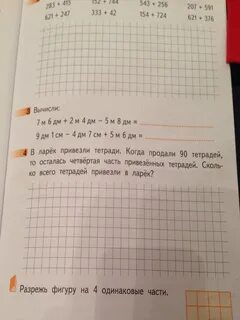 293 + 415 152 + 764 543 + 256 207 + 591
621 + 247 333 + 42 154 + 724 621 + 376
3 Вычисли:
7 м 6 дм + 2 м 4 дм − 5 м 8 дм =
9 дм 1 см − 4 дм 7 см + 5 м 6 дм =
4 В ларёк привезли тетради. Когда продали 90 тетрадей,
то осталась четвёртая часть привезённых тетрадей. Сколь-
ко всего тетрадей привезли в ларёк?
Разрежь фигуру на 4 одинаковые части.